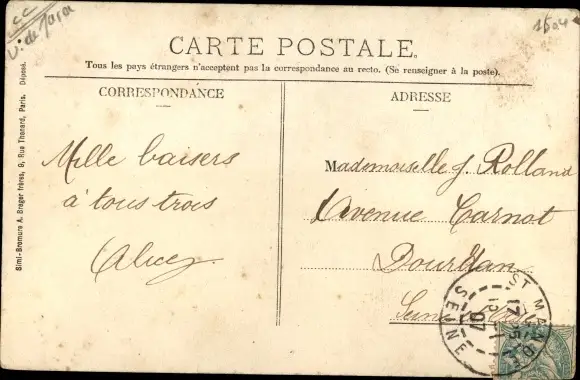 CARTE POSTALE.
Tous les pays étrangers n'acceptent pas la correspondance au recto. (Se renseigner à la poste).
CORRESPONDANCE
Mille baisers
à tous trois
Alice
ADRESSE
Mademoiselle J. Rolland
Avenue Carnot
Dourdan
Seine
Simi-Bromure A. Breger frères, 9, Rue Thenard, Paris. Déposé.
ST MANDÉ
17
07
SEINE